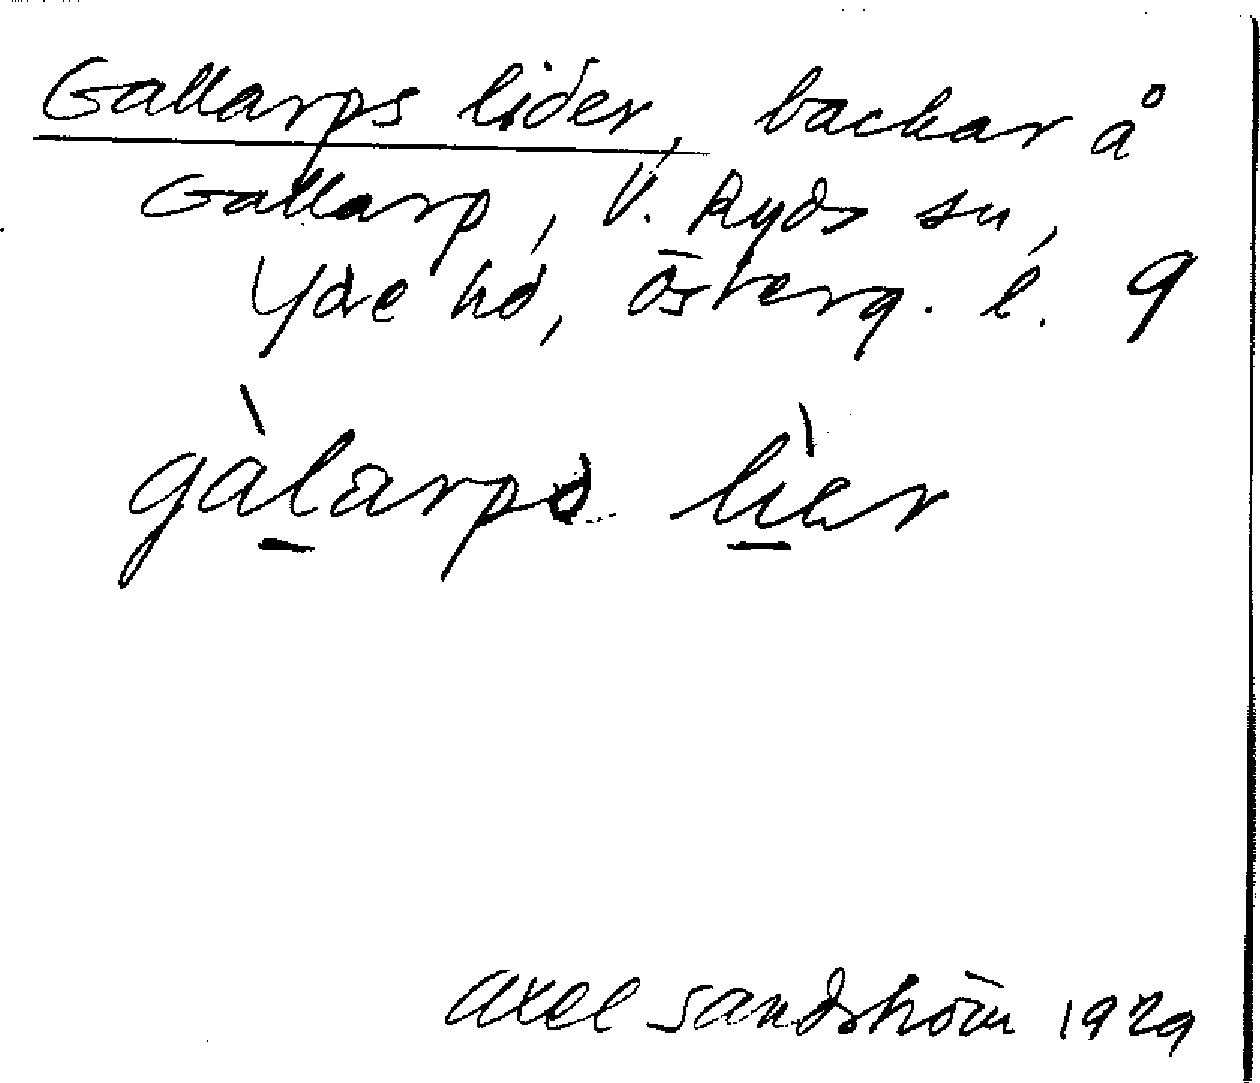 Gallarps lider, backar å
Gallarp, V. Ryds sn,
Ydre hd, Österg. l. 9
gàlarps lìer
Axel Sandström 1929